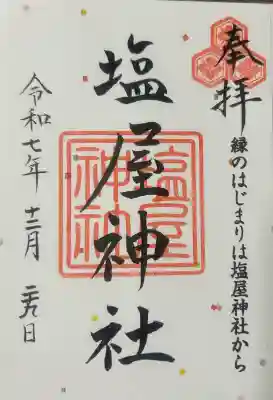 奉拝
縁のはじまりは塩屋神社から
塩屋神社
塩屋神社
令和七年 十二月 二九日